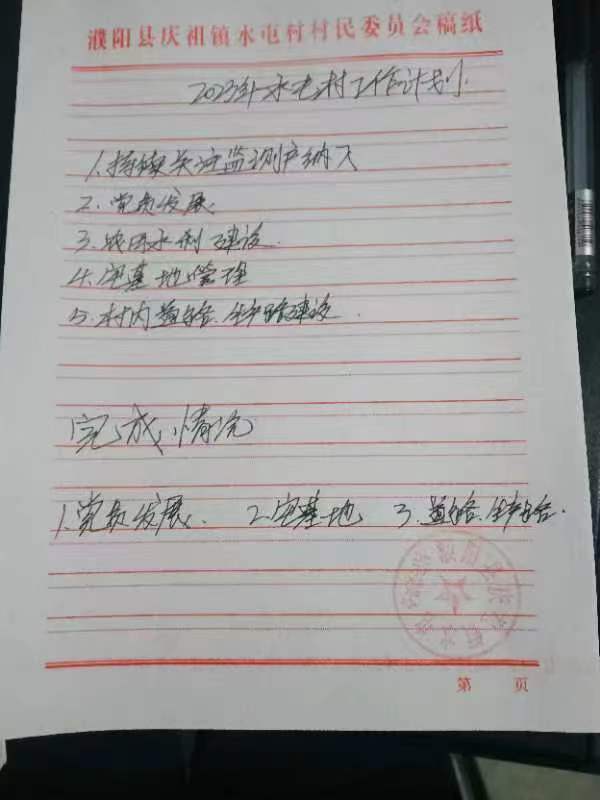 濮阳县庆祖镇水屯村村民委员会稿纸
2023年水屯村工作计划
1.持续关注监测户纳入
2.党员发展
3.农田水利建设.
4.宅基地管理
5.村内道路、生产路建设.
完成情况
1.党员发展、 2.宅基地 3.道路、生产路.
第 页